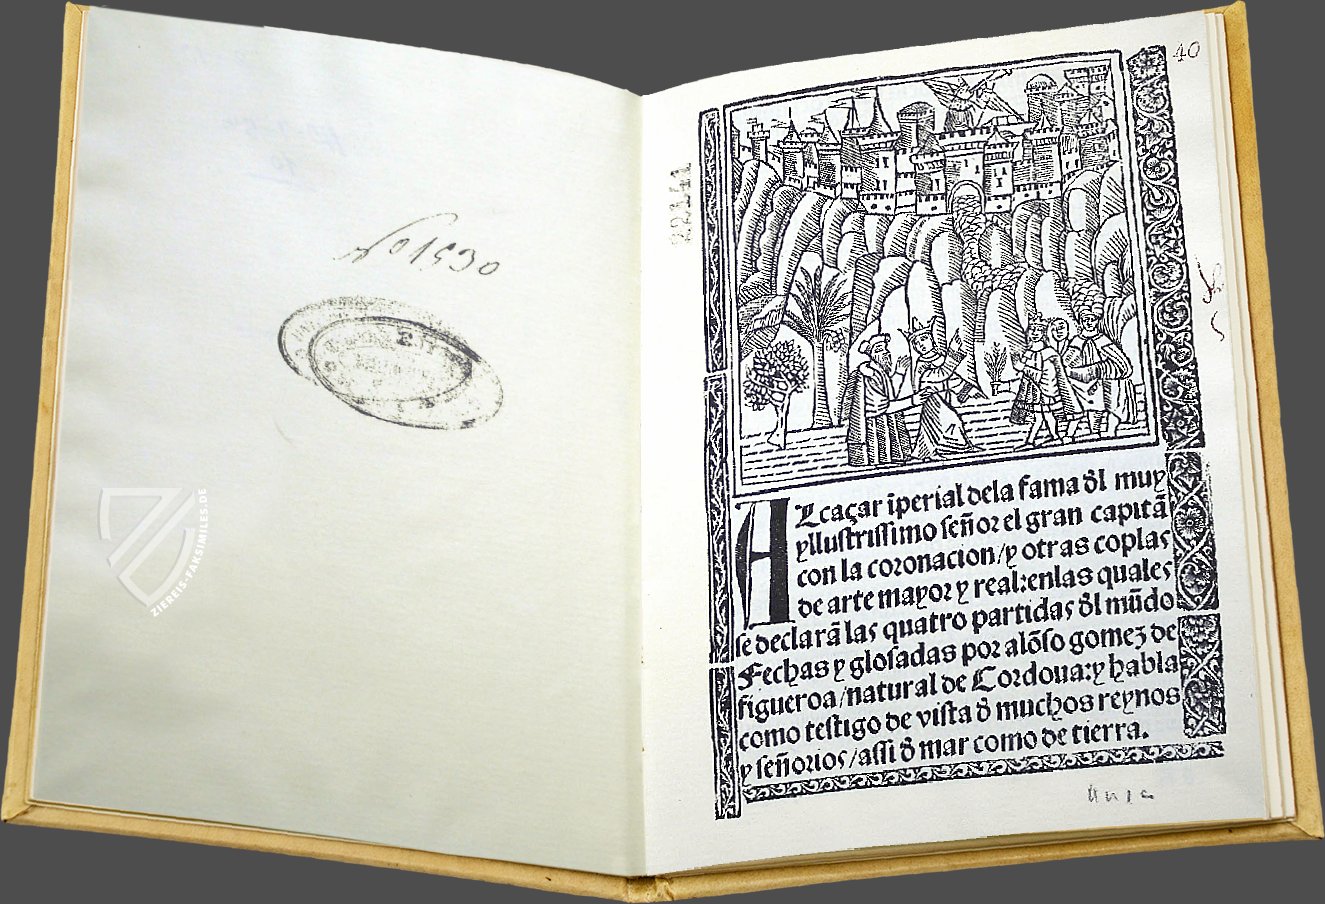 No 1530
ZIEREIS-FAKSIMILES.DE
40
22141
ALcaçar iperial dela fama ðl muy
yllustrissimo señor el gran capitã
con la coronacion/y otras coplas
de arte mayor y real:enlas quales
se declarã las quatro partidas ðl mũdo
Fechas y glosadas por alõso gomez de
figueroa/natural de Cordoua:y habla
como testigo de vista ð muchos reynos
y señorios/assi ð mar como de tierra.